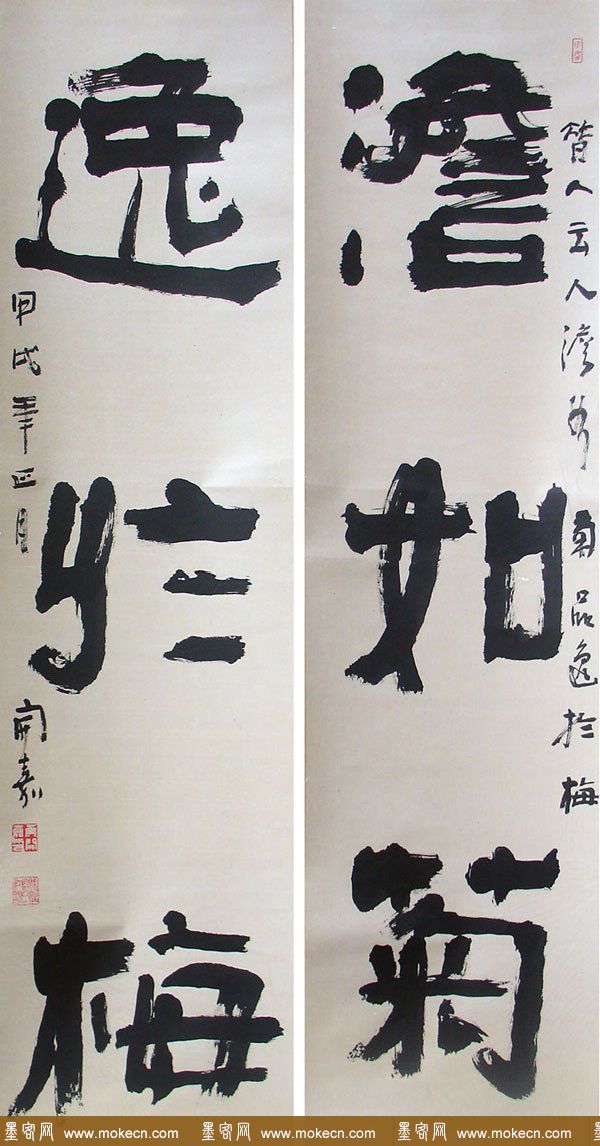 昔人云人澹若菊品逸於梅
澹如菊
逸於梅
甲戌年正月
開嘉
墨客网 www.mokecn.com 墨客网 www.mokecn.com 墨客网 www.mokecn.com